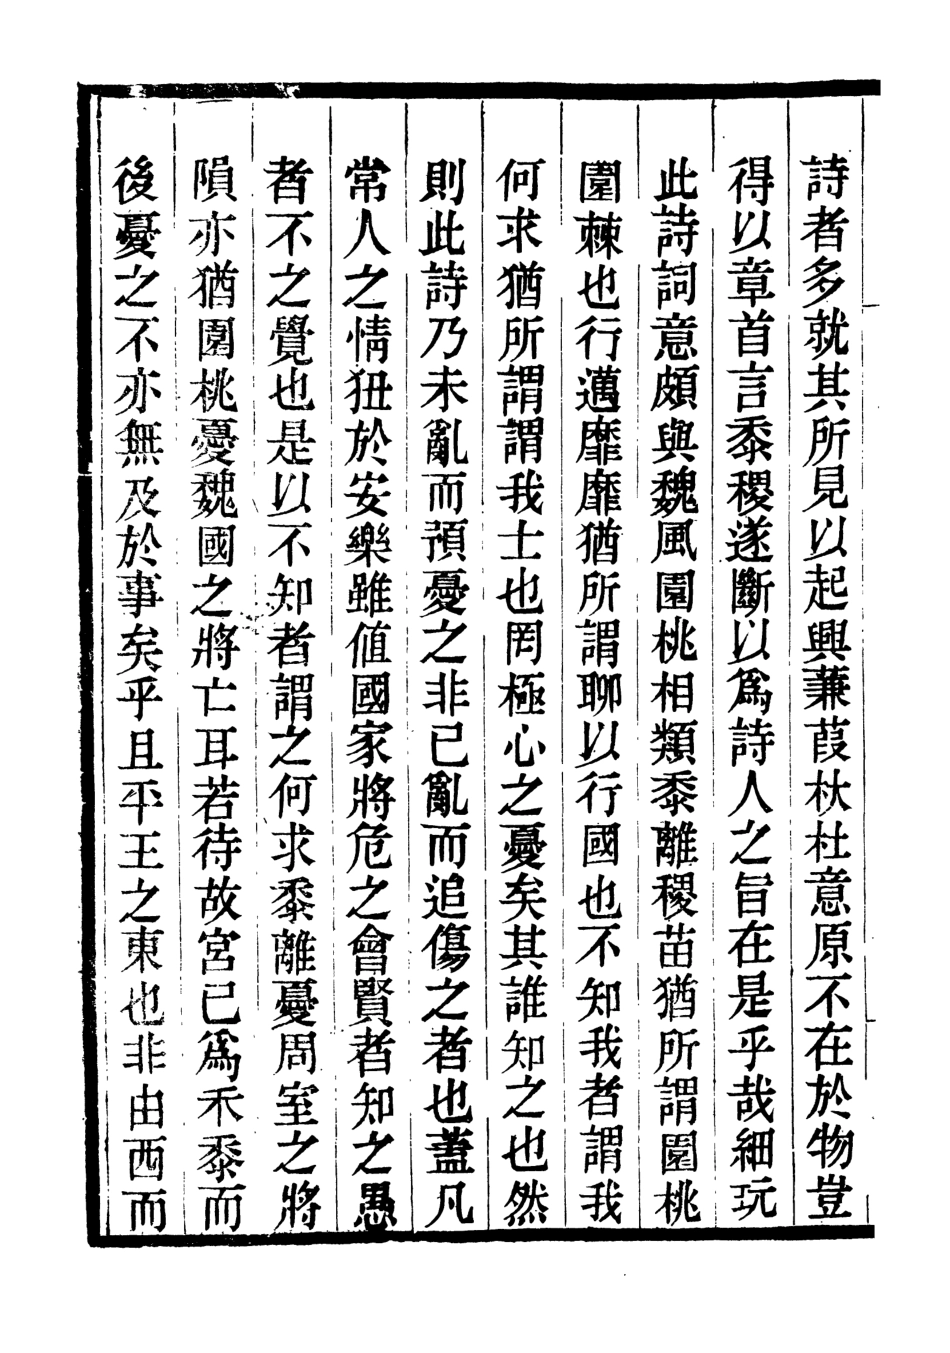 詩者多就其所見以起興蒹葭杕杜意原不在於物豈
得以章首言黍稷遂斷以爲詩人之旨在是乎哉細玩
此詩詞意頗與魏風園桃相類黍離稷苗猶所謂園桃
園棘也行邁靡靡猶所謂聊以行國也不知我者謂我
何求猶所謂謂我士也罔極心之憂矣其誰知之也然
則此詩乃未亂而預憂之非已亂而追傷之者也蓋凡
常人之情狃於安樂雖值國家將危之會賢者知之愚
者不之覺也是以不知者謂之何求黍離憂周室之將
隕亦猶園桃憂魏國之將亡耳若待故宮已爲禾黍而
後憂之不亦無及於事矣乎且平王之東也非由西而